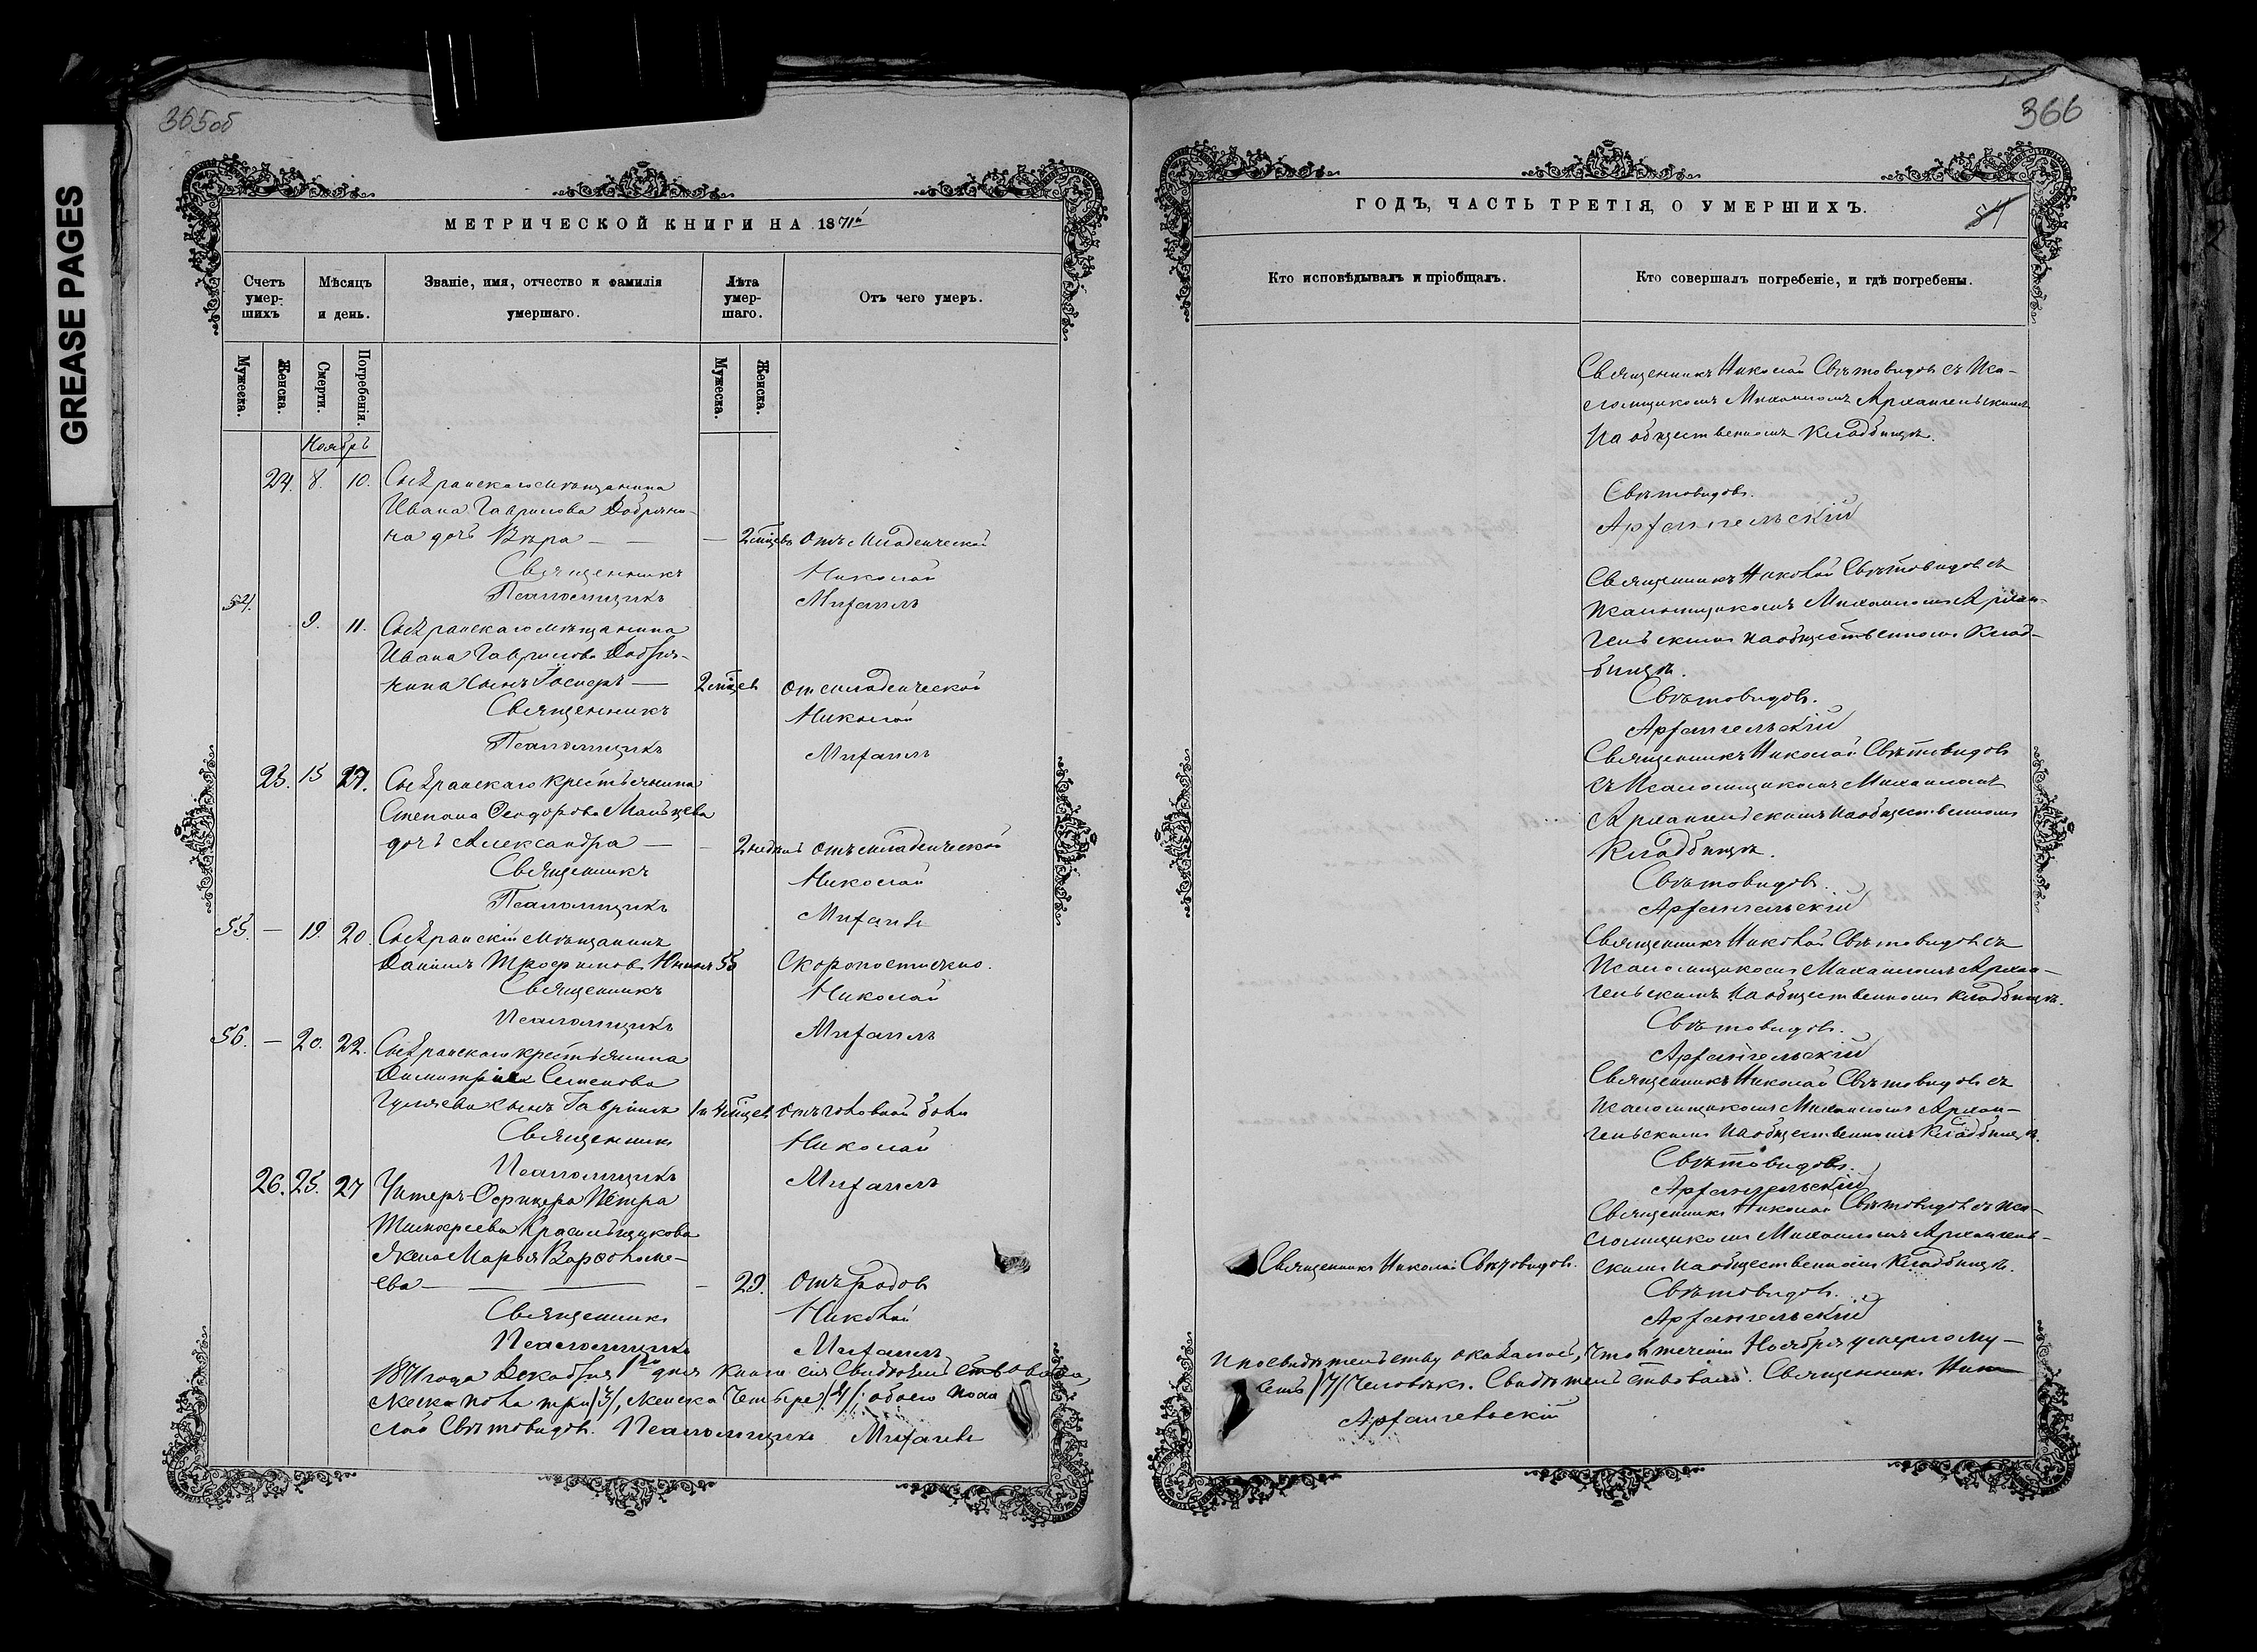 365об
GREASE PAGES
МЕТРИЧЕСКОЙ КНИГИ НА 1871й
Счетъ умер-шихъ
Мѣсяцъ и день.
Званіе, имя, отчество и фамилія умершаго.
Лѣта умер-шаго.
Отъ чего умеръ.
Мужеска.
Женска.
Смерти.
Погребенія.
Мужеска.
Женска.
Ноябрь
24. 8. 10. Сызранскаго мѣщанина
Ивана Гаврилова Добряни-
на дочь Вѣра — — — 2 мѣсцевъ отъ младенческой
Священникъ Николай
Псаломщикъ Михаилъ
54. 9. 11. Сызранскаго мѣщанина
Ивана Гаврилова Добря-
нина сынъ — 2 мѣсцев от младенческой
Священникъ Николай
Псаломщикъ Михаилъ
25. 15 27. Сызранскаго крестьянина
Степана Ѳеодорова Мальцева
дочь Александра — — 2 недѣль отъ младенческой
Священникъ Николай
Псаломщикъ Михаилъ
55. — 19. 20. Сызранскій мѣщанинъ
Даніилъ Трофимовъ 55 Скоропостижно.
Священникъ Николай
Псаломщикъ Михаилъ
56. — 20. 22. Сызранскаго крестьянина
Димитрія Семенова
сынъ Гавріилъ 1 и 4 мѣсцев отъ головной боли
Священникъ Николай
Псаломщикъ Михаилъ
26. 25. 27 Унтеръ-Офицера Петра
Тимофеева Красильщикова
жена Марья Варфоломе-
ева — — 29. Отъ родов
Священникъ Николай
Псаломщикъ Михаилъ
1871 года Декабря 1го дня книга сія Свидѣтельствована
жеска пола три /3/, женска Четыре /4/; обоего пола
лай Свѣтовидовъ. Псаломщикъ Михаилъ
366
ГОДЪ, ЧАСТЬ ТРЕТІЯ, О УМЕРШИХЪ.
Кто исповѣдывалъ и пріобщалъ.
Кто совершалъ погребеніе, и гдѣ погребены.
Священникъ Николай Свѣтовидовъ съ Пса-
ломщикомъ Михаиломъ Архангельскимъ
На общественномъ кладбищѣ.
Свѣтовидовъ.
Архангельскій
Священникъ Николай Свѣтовидовъ съ
Псаломщикомъ Михаиломъ Архан-
гельскимъ на общественномъ клад-
бищѣ.
Свѣтовидовъ.
Архангельскій
Священникъ Николай Свѣтовидовъ
съ Псаломщикомъ Михаиломъ
Архангельскимъ на общественномъ
кладбищѣ.
Свѣтовидовъ.
Архангельскій
Священникъ Николай Свѣтовидовъ съ
Псаломщикомъ Михаиломъ Архан-
гельскимъ на общественномъ кладбищѣ.
Свѣтовидовъ.
Архангельскій
Священникъ Николай Свѣтовидовъ съ
Псаломщикомъ Михаиломъ Архан-
гельскимъ на общественномъ кладбищѣ.
Свѣтовидовъ.
Архангельскій
Священникъ Николай Свѣтовидовъ съ Пса-
ломщикомъ Михаиломъ Архангель-
Священникъ Николай Свѣтовидовъ. скимъ на общественномъ кладбищѣ.
Свѣтовидовъ.
Архангельскій
и по свидѣтельству оказалось, что в теченіи Ноября умерло му-
семь /7/ человѣкъ. Свидѣтельствовали: Священникъ Нико-
Архангельскій